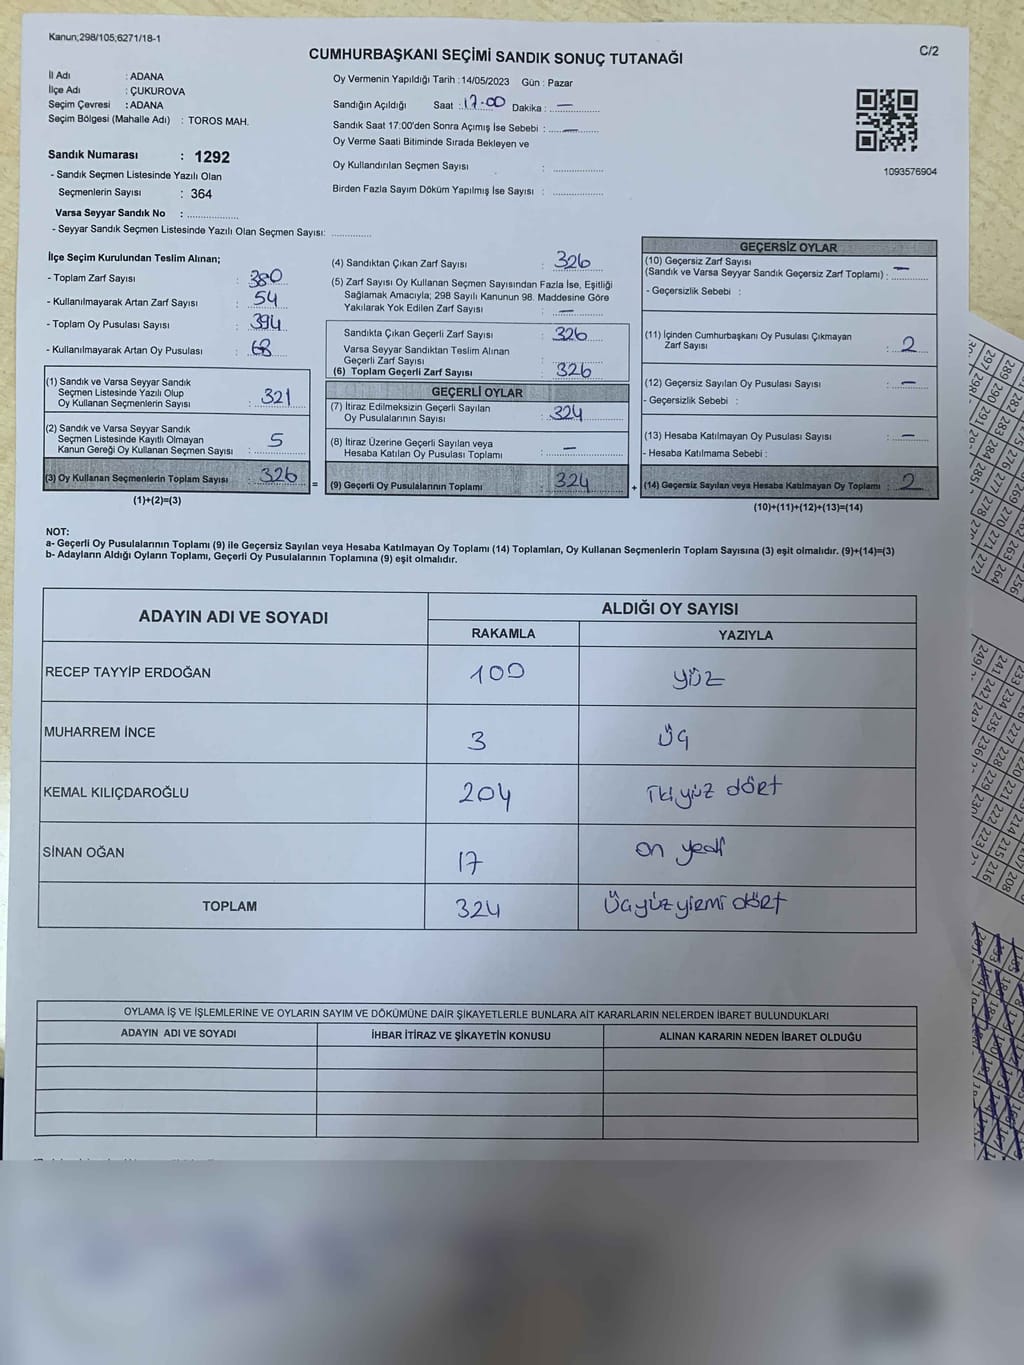 Kanun;298/105;6271/18-1
C/2
CUMHURBAŞKANI SEÇİMİ SANDIK SONUÇ TUTANAĞI
İl Adı : ADANA
İlçe Adı : ÇUKUROVA
Seçim Çevresi : ADANA
Seçim Bölgesi (Mahalle Adı) : TOROS MAH.
Sandık Numarası : 1292
- Sandık Seçmen Listesinde Yazılı Olan
Seçmenlerin Sayısı : 364
Varsa Seyyar Sandık No : ................
- Seyyar Sandık Seçmen Listesinde Yazılı Olan Seçmen Sayısı: ............
Oy Vermenin Yapıldığı Tarih : 14/05/2023 Gün : Pazar
Sandığın Açıldığı Saat : 17-00 Dakika : —
Sandık Saat 17:00'den Sonra Açımış İse Sebebi : —
Oy Verme Saati Bitiminde Sırada Bekleyen ve
Oy Kullandırılan Seçmen Sayısı : ................
Birden Fazla Sayım Döküm Yapılmış İse Sayısı : ................
1093576904
İlçe Seçim Kurulundan Teslim Alınan;
- Toplam Zarf Sayısı : 380
- Kullanılmayarak Artan Zarf Sayısı : 54
- Toplam Oy Pusulası Sayısı : 394
- Kullanılmayarak Artan Oy Pusulası : 68
(1) Sandık ve Varsa Seyyar Sandık
Seçmen Listesinde Yazılı Olup
Oy Kullanan Seçmenlerin Sayısı : 321
(2) Sandık ve Varsa Seyyar Sandık
Seçmen Listesinde Kayıtlı Olmayan
Kanun Gereği Oy Kullanan Seçmen Sayısı : 5
(3) Oy Kullanan Seçmenlerin Toplam Sayısı : 326
(1)+(2)=(3)
=
(4) Sandıktan Çıkan Zarf Sayısı : 326
(5) Zarf Sayısı Oy Kullanan Seçmen Sayısından Fazla İse, Eşitliği
Sağlamak Amacıyla; 298 Sayılı Kanunun 98. Maddesine Göre
Yakılarak Yok Edilen Zarf Sayısı : —
Sandıkta Çıkan Geçerli Zarf Sayısı : 326
Varsa Seyyar Sandıktan Teslim Alınan
Geçerli Zarf Sayısı
(6) Toplam Geçerli Zarf Sayısı : 326
GEÇERLİ OYLAR
(7) İtiraz Edilmeksizin Geçerli Sayılan
Oy Pusulalarının Sayısı : 324
(8) İtiraz Üzerine Geçerli Sayılan veya
Hesaba Katılan Oy Pusulası Toplamı : —
(9) Geçerli Oy Pusulalarının Toplamı : 324
+
GEÇERSİZ OYLAR
(10) Geçersiz Zarf Sayısı
(Sandık ve Varsa Seyyar Sandık Geçersiz Zarf Toplamı) : —
- Geçersizlik Sebebi :
(11) İçinden Cumhurbaşkanı Oy Pusulası Çıkmayan
Zarf Sayısı : 2
(12) Geçersiz Sayılan Oy Pusulası Sayısı : —
- Geçersizlik Sebebi :
(13) Hesaba Katılmayan Oy Pusulası Sayısı : —
- Hesaba Katılmama Sebebi :
(14) Geçersiz Sayılan veya Hesaba Katılmayan Oy Toplamı : 2
(10)+(11)+(12)+(13)=(14)
NOT:
a- Geçerli Oy Pusulalarının Toplamı (9) ile Geçersiz Sayılan veya Hesaba Katılmayan Oy Toplamı (14) Toplamları, Oy Kullanan Seçmenlerin Toplam Sayısına (3) eşit olmalıdır. (9)+(14)=(3)
b- Adayların Aldığı Oyların Toplamı, Geçerli Oy Pusulalarının Toplamına (9) eşit olmalıdır.
ADAYIN ADI VE SOYADI
ALDIĞI OY SAYISI
RAKAMLA YAZIYLA
RECEP TAYYİP ERDOĞAN 100 yüz
MUHARREM İNCE 3 üç
KEMAL KILIÇDAROĞLU 204 ikiyüz dört
SİNAN OĞAN 17 on yedi
TOPLAM 324 üçyüzyirmi dört
OYLAMA İŞ VE İŞLEMLERİNE VE OYLARIN SAYIM VE DÖKÜMÜNE DAİR ŞİKAYETLERLE BUNLARA AİT KARARLARIN NELERDEN İBARET BULUNDUKLARI
ADAYIN ADI VE SOYADI İHBAR İTİRAZ VE ŞİKAYETİN KONUSU ALINAN KARARIN NEDEN İBARET OLDUĞU